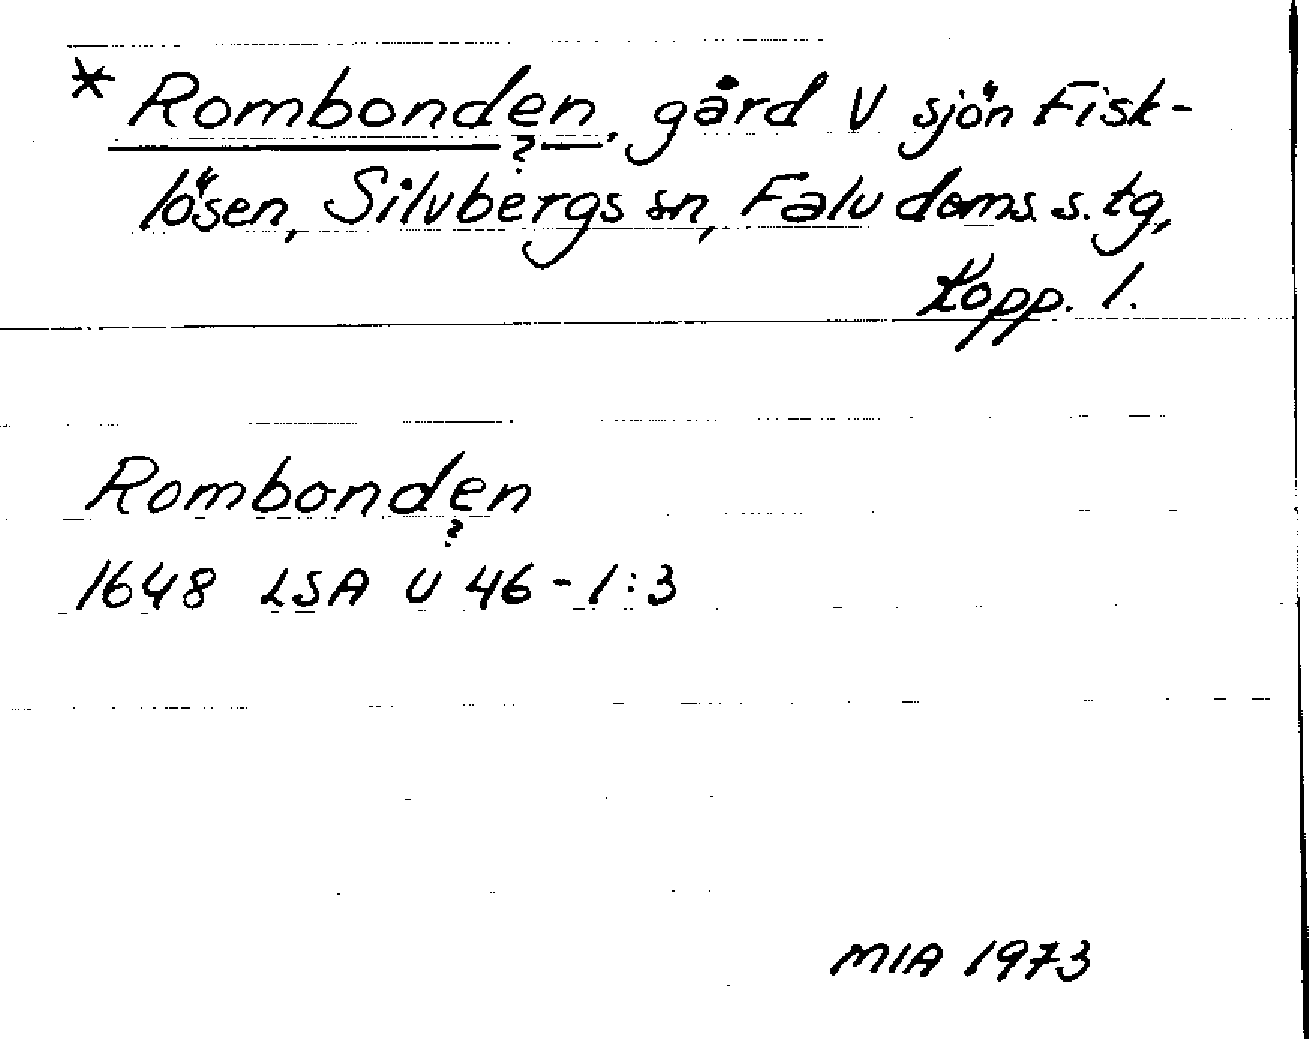 * Rombonden, gård V sjön Fisk-
?
lösen, Silvbergs sn, Falu doms. s. tg,
Kopp. l.
Rombonden
?
1648 LSA U 46-1:3
MIA 1973